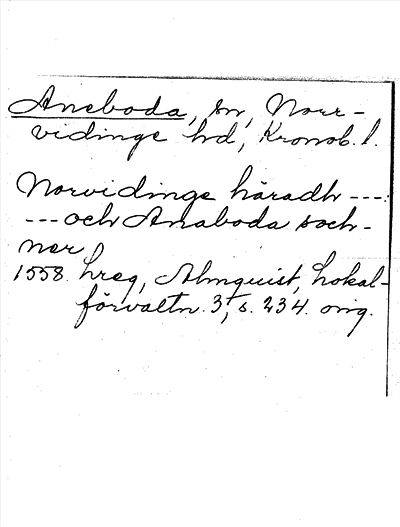 Aneboda, sn, Norr-
vidinge hd, Kronob. l.
Norvidinge häradh ----
--- och Anaboda soch-
ner
1558. hreg, Almquist, Lokal-
förvaltn. 3, s. 234. orig.